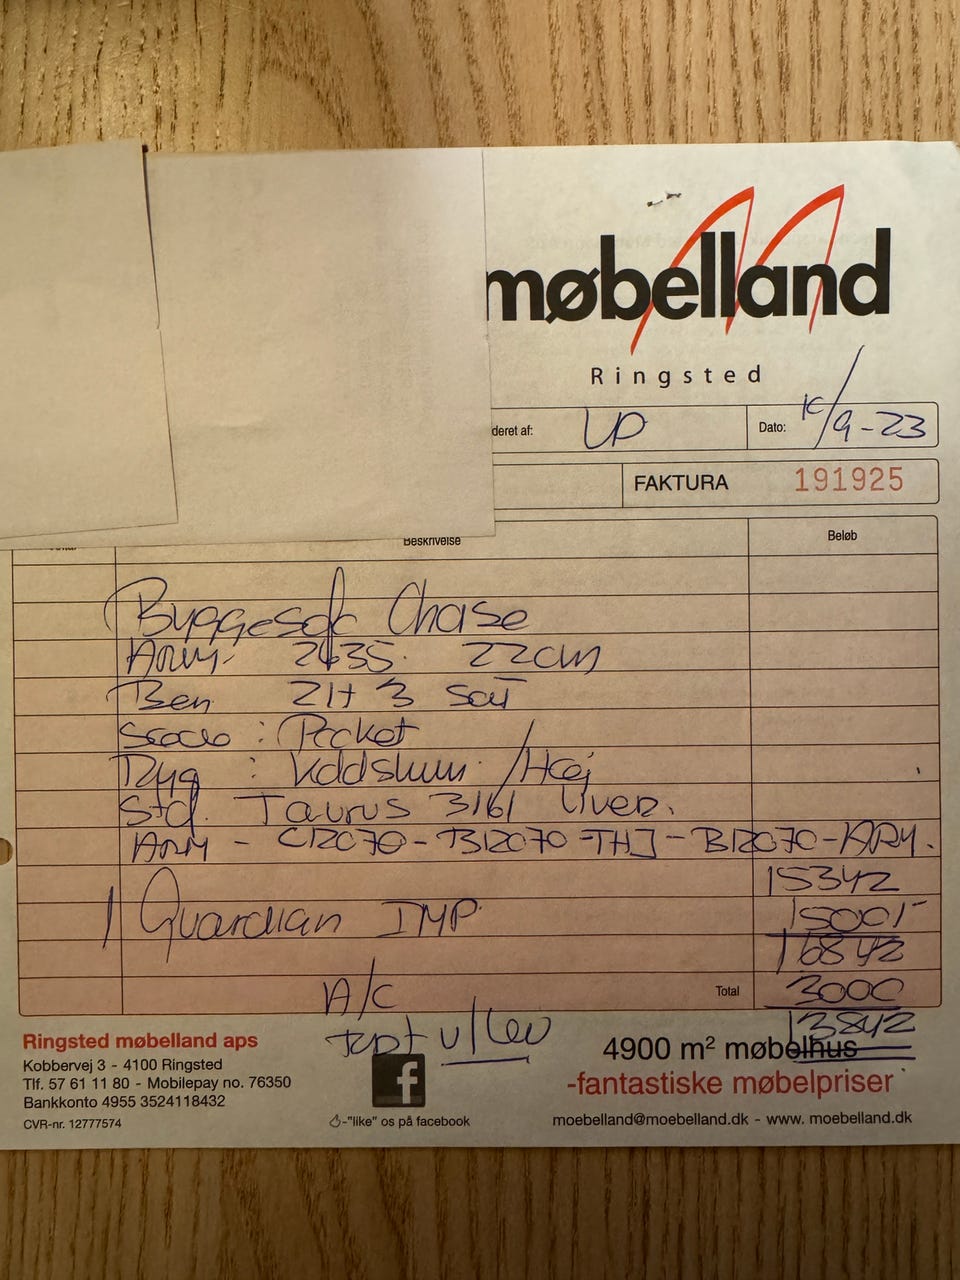 møbelland
Ringsted
deret af: UP Dato: /9-23
FAKTURA 191925
Beskrivelse Beløb
Byggesofa Chase
Arm 2435. 22cm
Ben 21+ 3 sæt
: Pocket
Ryg : /Høj
Std. Taurus 3161
Arm - CR070 - BR070 - THJ - BR070 - ARM.
15342
1 Guardian IMP 1500,-
16842
A/C Total 3000
v/lev 13842
Ringsted møbelland aps
Kobbervej 3 - 4100 Ringsted
Tlf. 57 61 11 80 - Mobilepay no. 76350
Bankkonto 4955 3524118432
CVR-nr. 12777574
f
-"like" os på facebook
4900 m² møbelhus
-fantastiske møbelpriser
moebelland@moebelland.dk - www. moebelland.dk